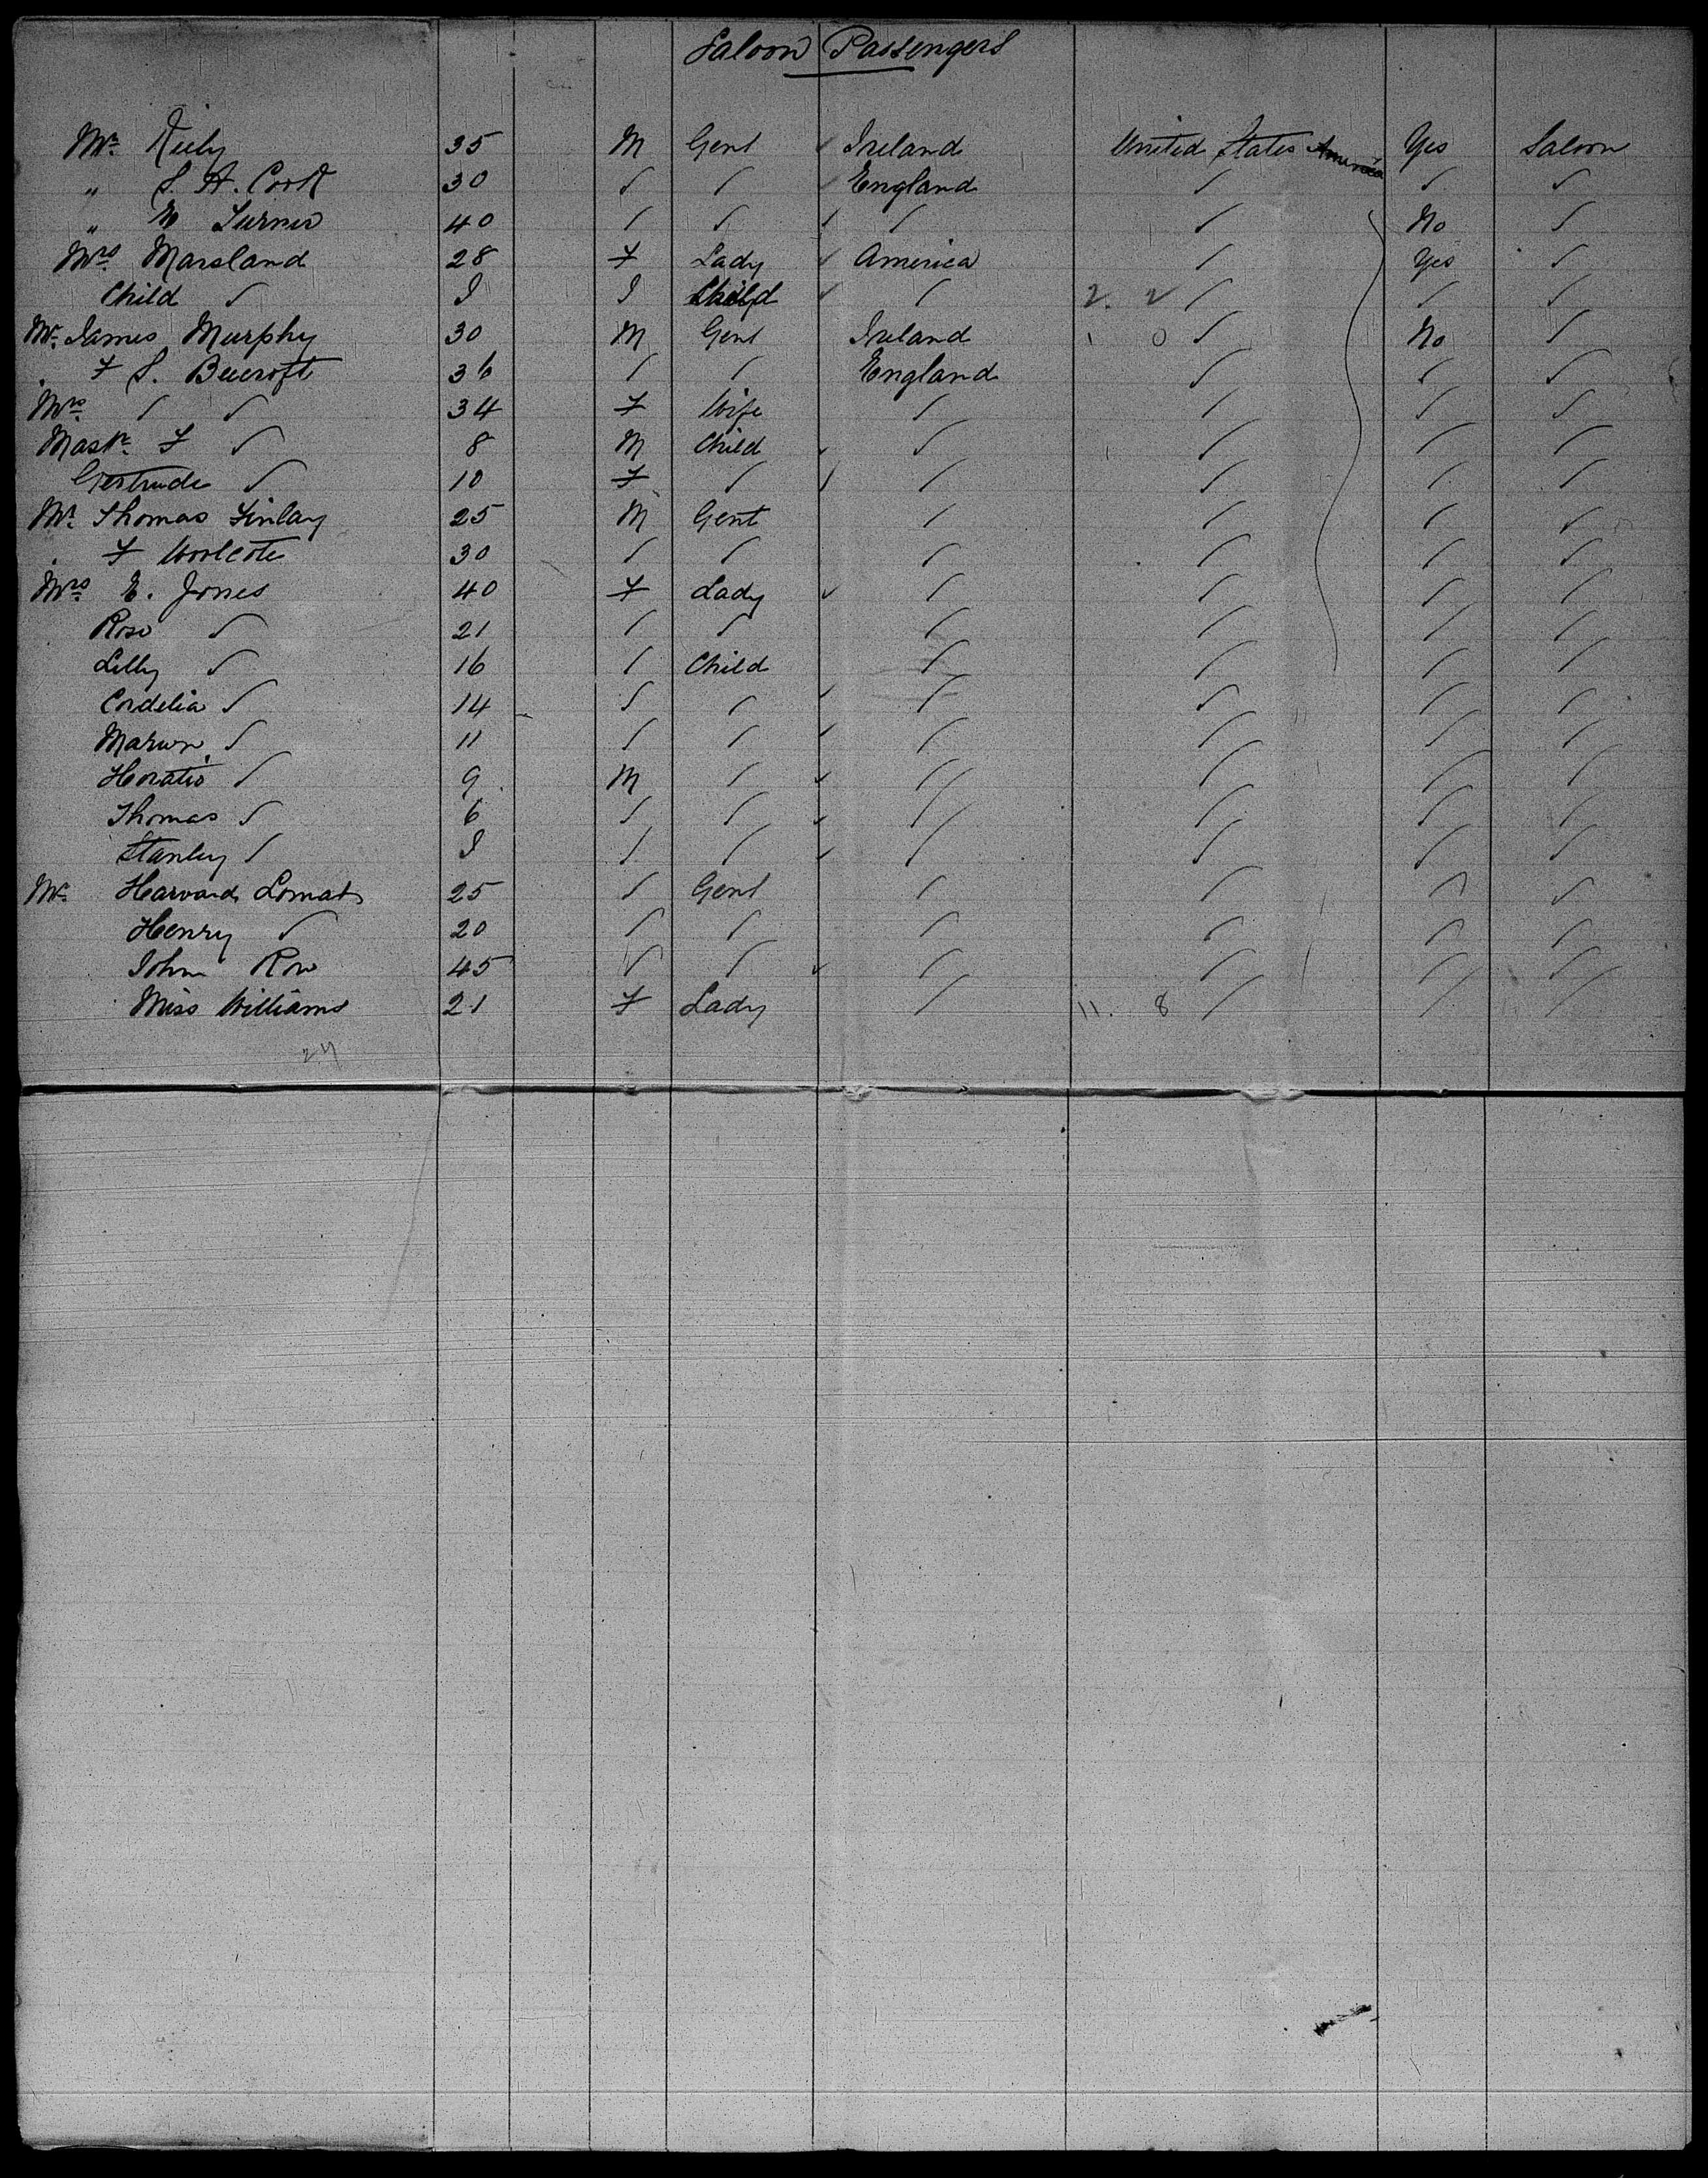 Saloon Passengers
Mr. Riely 35 M Gent Ireland United States America Yes Saloon
" S. A. Cook 30 ✓ ✓ England ✓ ✓ ✓
" E Turner 40 ✓ ✓ ✓ ✓ No ✓
Mrs. Marsland 28 F Lady America ✓ Yes ✓
Child ✓ Child ✓ 2. 2 ✓ ✓ ✓
Mr. James Murphy 30 M Gent Ireland 1 0 ✓ No ✓
F S. Beecroft 36 ✓ ✓ England ✓ ✓ ✓
Mrs. ✓ ✓ 34 F Wife ✓ ✓ ✓ ✓
Mastr. F ✓ 8 M Child ✓ ✓ ✓ ✓
Gertrude ✓ 10 F ✓ ✓ ✓ ✓ ✓
Mr. Thomas Finlay 25 M Gent ✓ ✓ ✓ ✓
F Woolcote 30 ✓ ✓ ✓ ✓ ✓ ✓
Mrs. E. Jones 40 F Lady ✓ ✓ ✓ ✓
Rose ✓ 21 ✓ ✓ ✓ ✓ ✓ ✓
Lilly ✓ 16 ✓ Child ✓ ✓ ✓ ✓
Cordelia ✓ 14 ✓ ✓ ✓ ✓ ✓ ✓
Marion ✓ 11 ✓ ✓ ✓ ✓ ✓ ✓
Horatio ✓ 9 M ✓ ✓ ✓ ✓ ✓
Thomas ✓ 6 ✓ ✓ ✓ ✓ ✓ ✓
Stanley ✓ ✓ ✓ ✓ ✓ ✓ ✓
Mr. Harvard Lomas 25 ✓ Gent ✓ ✓ ✓ ✓
Henry ✓ 20 ✓ ✓ ✓ ✓ ✓ ✓
John Row 45 ✓ ✓ ✓ ✓ ✓ ✓
Miss Williams 21 F Lady ✓ 11. 8 ✓ ✓ ✓
24